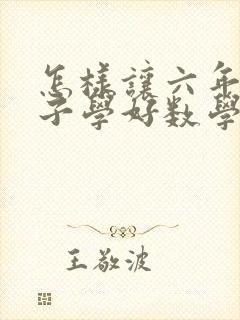 怎樣讓六年
子學好数學
王敬波